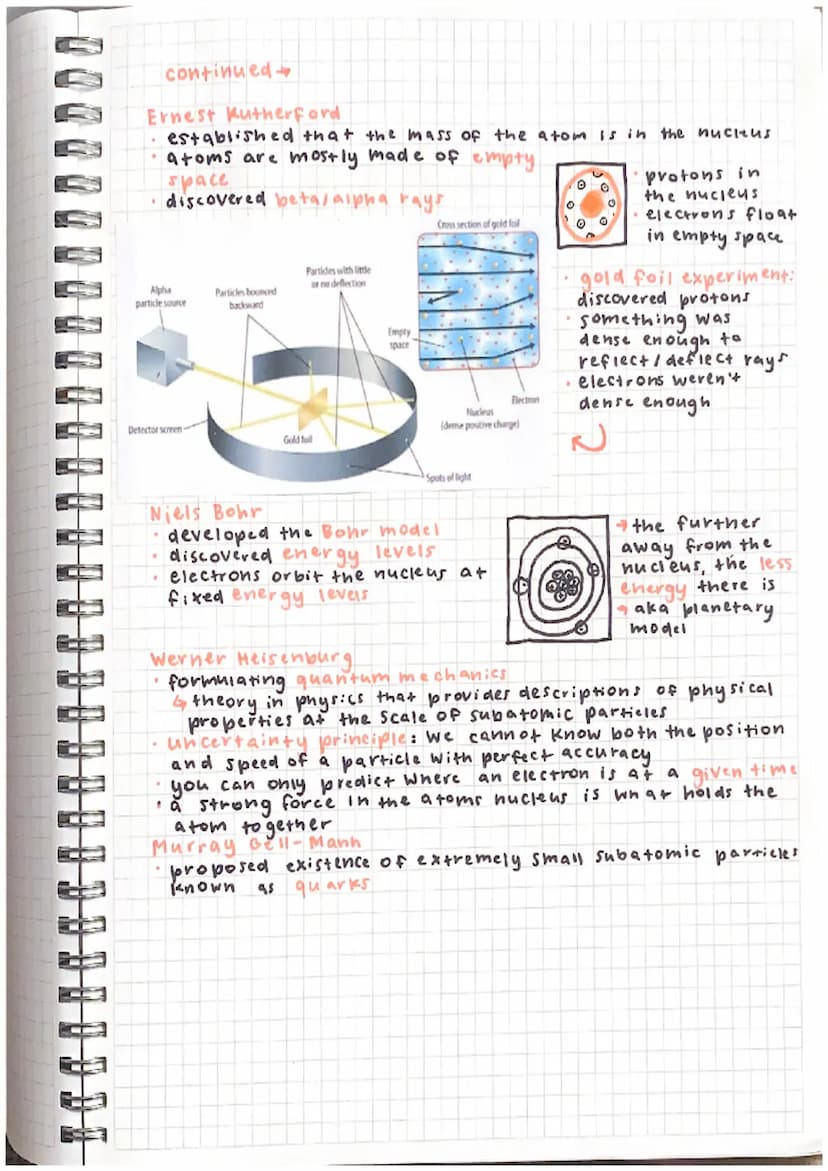 continued→
Ernest Rutherford
· established that the mass of the atom is in the nucleus
· atoms are mostly made of empty
space
· discovered beta/alpha rays
· protons in
the nucleus
· electrons float
in empty space
Cross section of gold foil
Particles with little
or no deflection
Alpha
particle source
Particles bounced
backward
Empty
space
Electron
Nucleus
(dense positive charge)
Detector screen
Gold foil
Spots of light
· gold foil experiment:
discovered protons
· something was
dense enough to
reflect/deflect rays
· electrons weren't
dense enough
Niels Bohr
· developed the Bohr model
· discovered energy levels
· electrons orbit the nucleus at
fixed energy levels
→ the further
away from the
nucleus, the less
energy there is
→ aka planetary
model
Werner Heisenburg
· formulating quantum mechanics
↳ theory in physics that provides descriptions of physical
properties at the scale of subatomic particles
· uncertainty principle: we cannot know both the position
and speed of a particle with perfect accuracy
· you can only predict where an electron is at a given time
· a strong force in the atoms nucleus is what holds the
atom together
Murray Gell-Mann
· proposed existence of extremely small subatomic particles
known as quarks